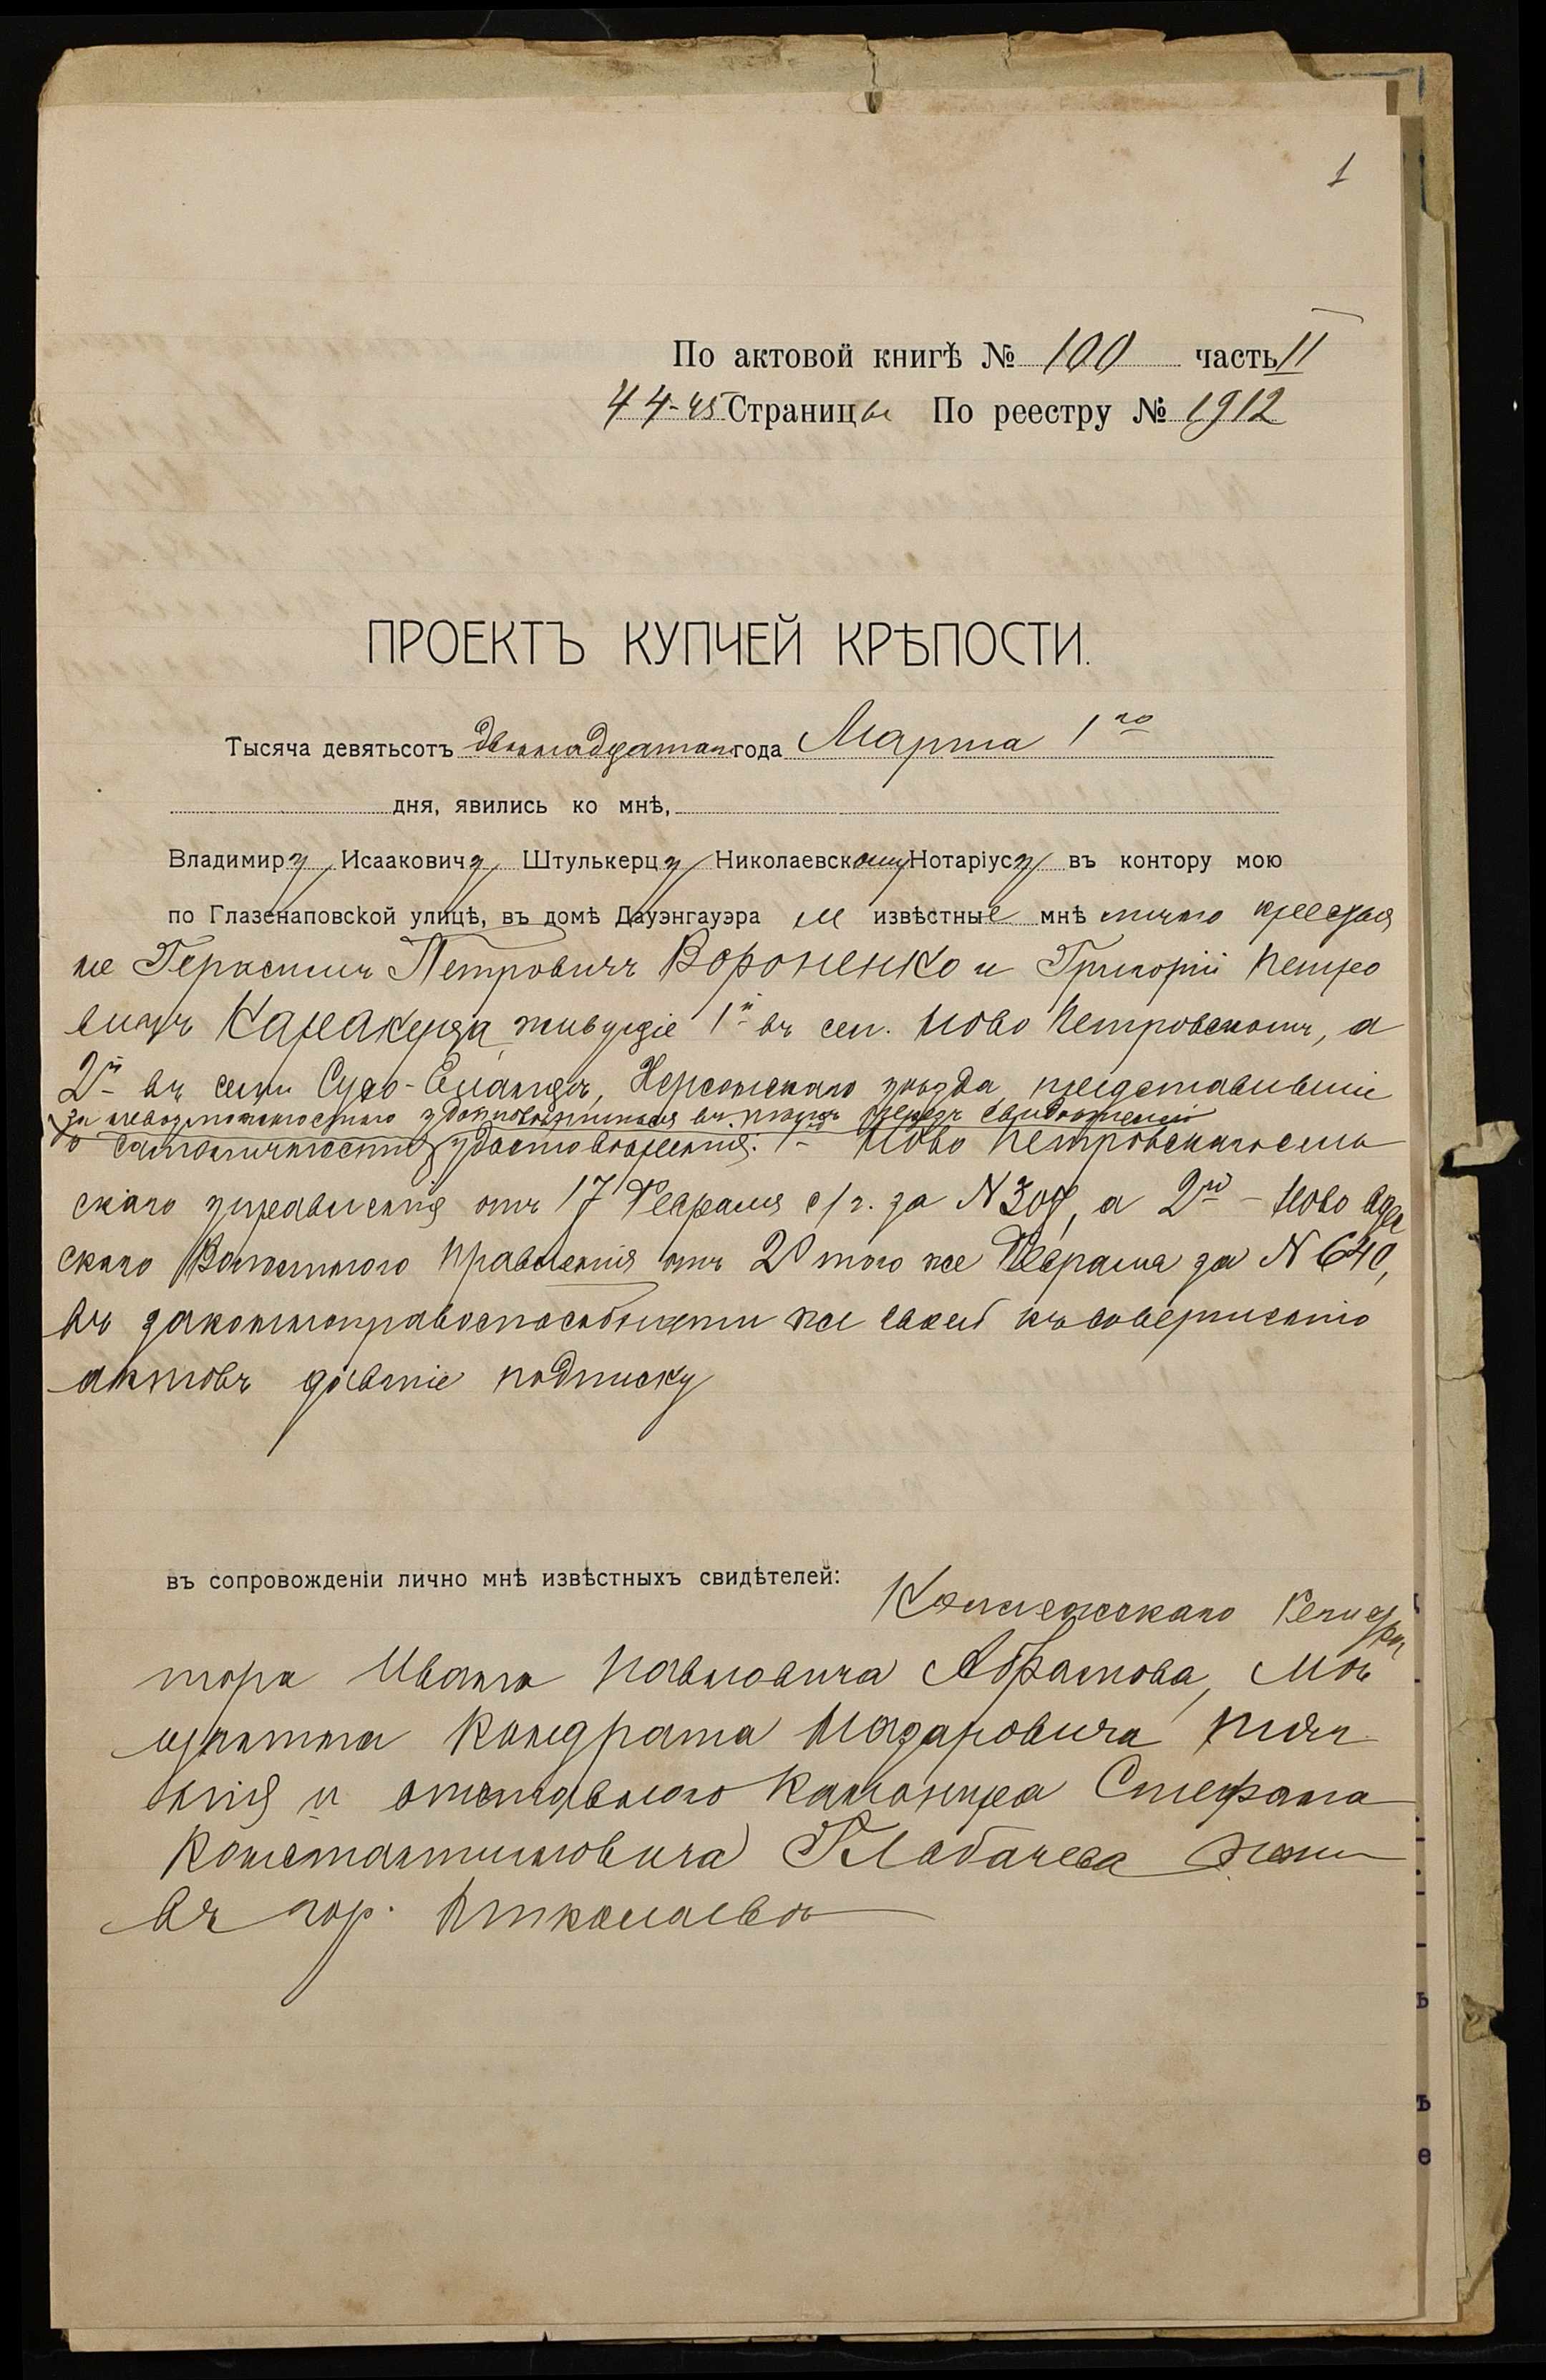 1
По актовой книгѣ № 100 часть II
44-45 Страницы По реестру № 1912
ПРОЕКТЪ КУПЧЕЙ КРѢПОСТИ.
Тысяча девятьсотъ двѣнадцатаго года Марта 1го
дня, явились ко мнѣ,
Владимиру Исааковичу Штулькерцу Николаевскому Нотаріусу въ контору мою
по Глазенаповской улицѣ, въ домѣ Дауэнгауэра и извѣстные мнѣ лично крестья
не Герасимъ Петровичъ Вороненко и Григорій Петро
вичъ живущіе 1й въ сел. Ново Петровскомъ, а
2й въ селѣ Херсонскаго уѣзда представившіе
за невозможностью удостовѣриться въ свидѣтелей
о самоличности удостовѣренія: 1й Ново Петровскаго сель
скаго управленія отъ 17 Февраля с/г. за N 307, а 2й - Ново Одес
скаго Волостного Правленія отъ 20 того же Февраля за N 640,
въ законной правоспособности же своей къ совершенію
актовъ давшіе подписку
въ сопровожденіи лично мнѣ извѣстныхъ свидѣтелей: Коллежскаго Регистра
тора Ивана Павловича Абрамова, Мѣ
щанина Кондрата Назаровича
и отставного Канонира Стефана
Константиновича Глабачева
въ гор. Николаевѣ
ъ
ъ
е